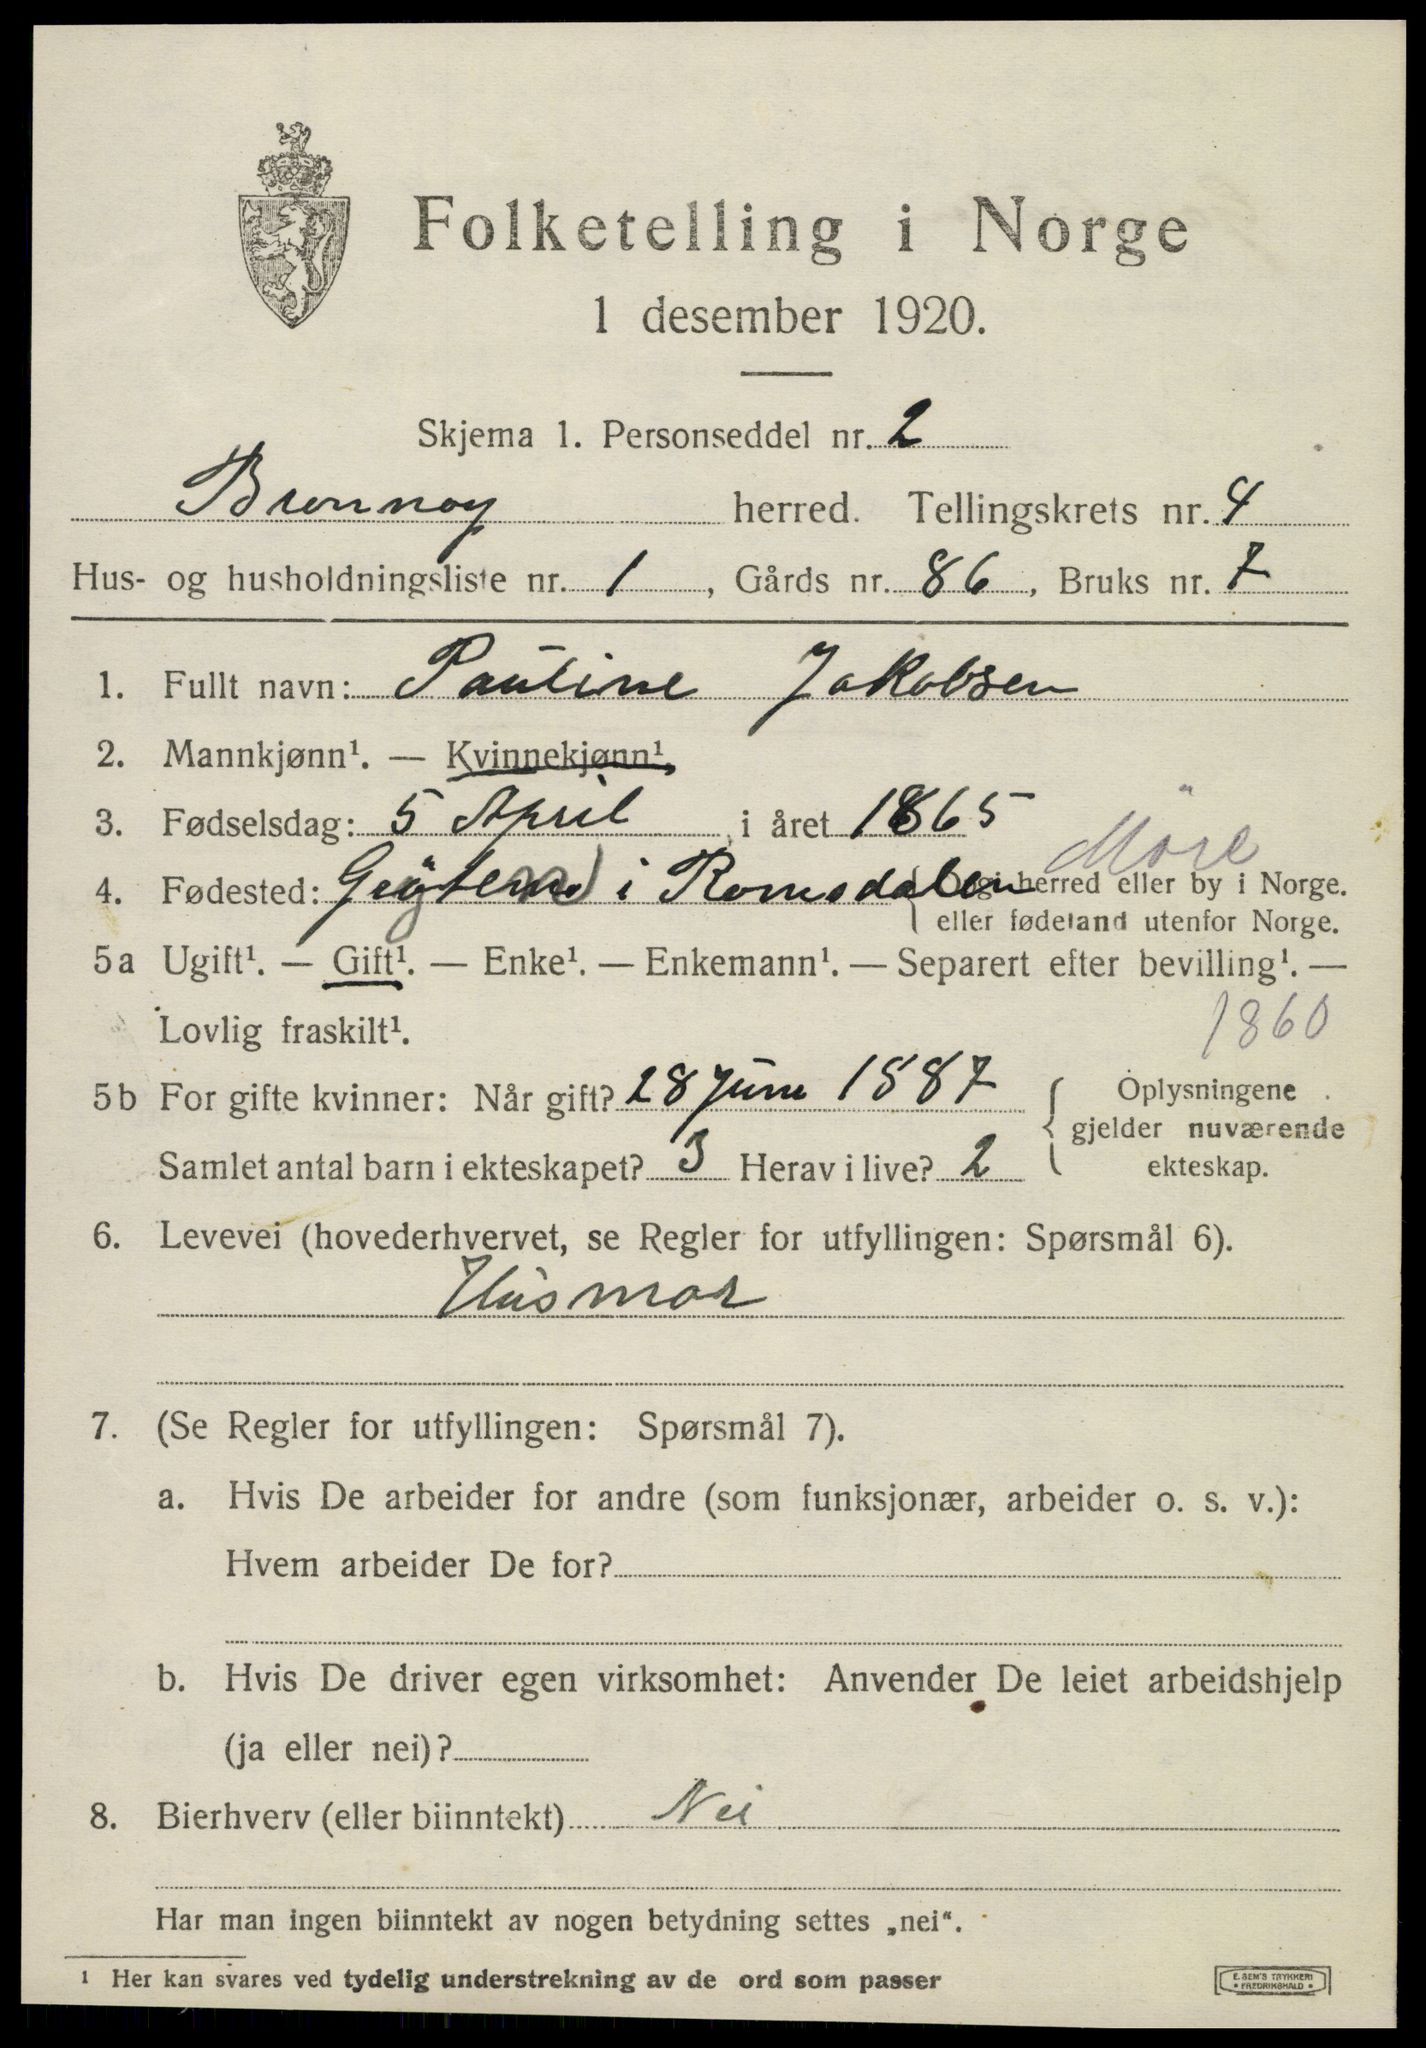 Folketelling i Norge
1 desember 1920.
Skjema 1. Personseddel nr. 2
Brønnøy herred. Tellingskrets nr. 4
Hus- og husholdningsliste nr. 1, Gårds nr. 86, Bruks nr. 7
1. Fullt navn: Pauline Jakobsen
2. Mannkjønn¹. — Kvinnekjønn¹.
3. Fødselsdag: 5 April i året 1865
Möre
4. Fødested: i Romsdalen { Opgi herred eller by i Norge.
eller fødeland utenfor Norge.
5a Ugift¹. — Gift¹. — Enke¹. — Enkemann¹. — Separert efter bevilling¹. —
Lovlig fraskilt¹.
1860
5b For gifte kvinner: Når gift? 28 Juni 1887 { Oplysningene
gjelder nuværende
Samlet antal barn i ekteskapet? 3 Herav i live? 2
ekteskap.
6. Levevei (hovederhvervet, se Regler for utfyllingen: Spørsmål 6).
Husmor
7. (Se Regler for utfyllingen: Spørsmål 7).
a. Hvis De arbeider for andre (som funksjonær, arbeider o. s. v.):
Hvem arbeider De for?
b. Hvis De driver egen virksomhet: Anvender De leiet arbeidshjelp
(ja eller nei)?
8. Bierhverv (eller biinntekt) Nei
Har man ingen biinntekt av nogen betydning settes „nei“.
1 Her kan svares ved tydelig understrekning av de ord som passer
E. SEM'S TRYKKERI
• FREDRIKSHALD •